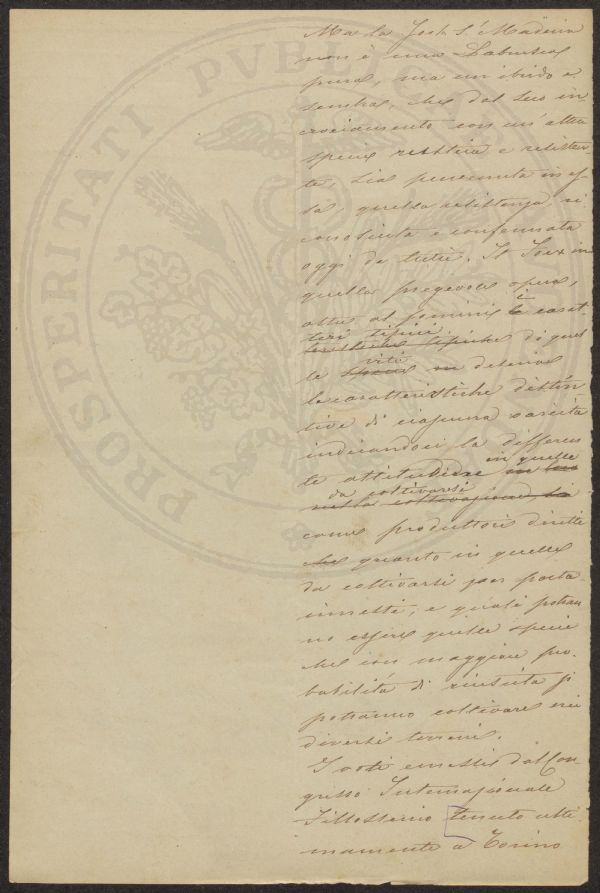 PROSPERITATI PVBL
Ma la York's Madeira
non è una Labrusca
pura, ma un ibrido e
sembra, che dal suo in-
crociamento con un'altra
specie resistente
sia pervenuta in es-
sa, quella resistenza ri-
conosciuta e confermata
oggi da tutti. Il in
quella pregevole opera,
oltre al i carat-
teri tipici
teristiche tipiche di quel
viti
le specie ne descrive
le caratteristiche distin-
tive di ciascuna varietà
indicandoci la differen-
te attitudine in quelle
da coltivarsi
nella coltivazione
come produttori diretti
che quanto in quelle
da coltivarsi per porta-
innesti, e quali potran-
no essere quelle specie
che con maggiore pro-
babilità di riuscita si
potranno coltivare nei
diversi terreni.
I voti emessi dal Con-
gresso Internazionale
Fillosserico tenuto ulti-
mamente a Torino